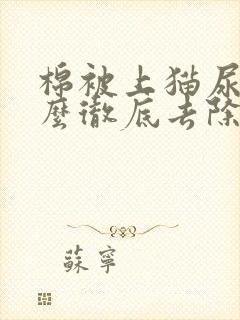 棉被上猫尿
麼徹底去除
蘇寧